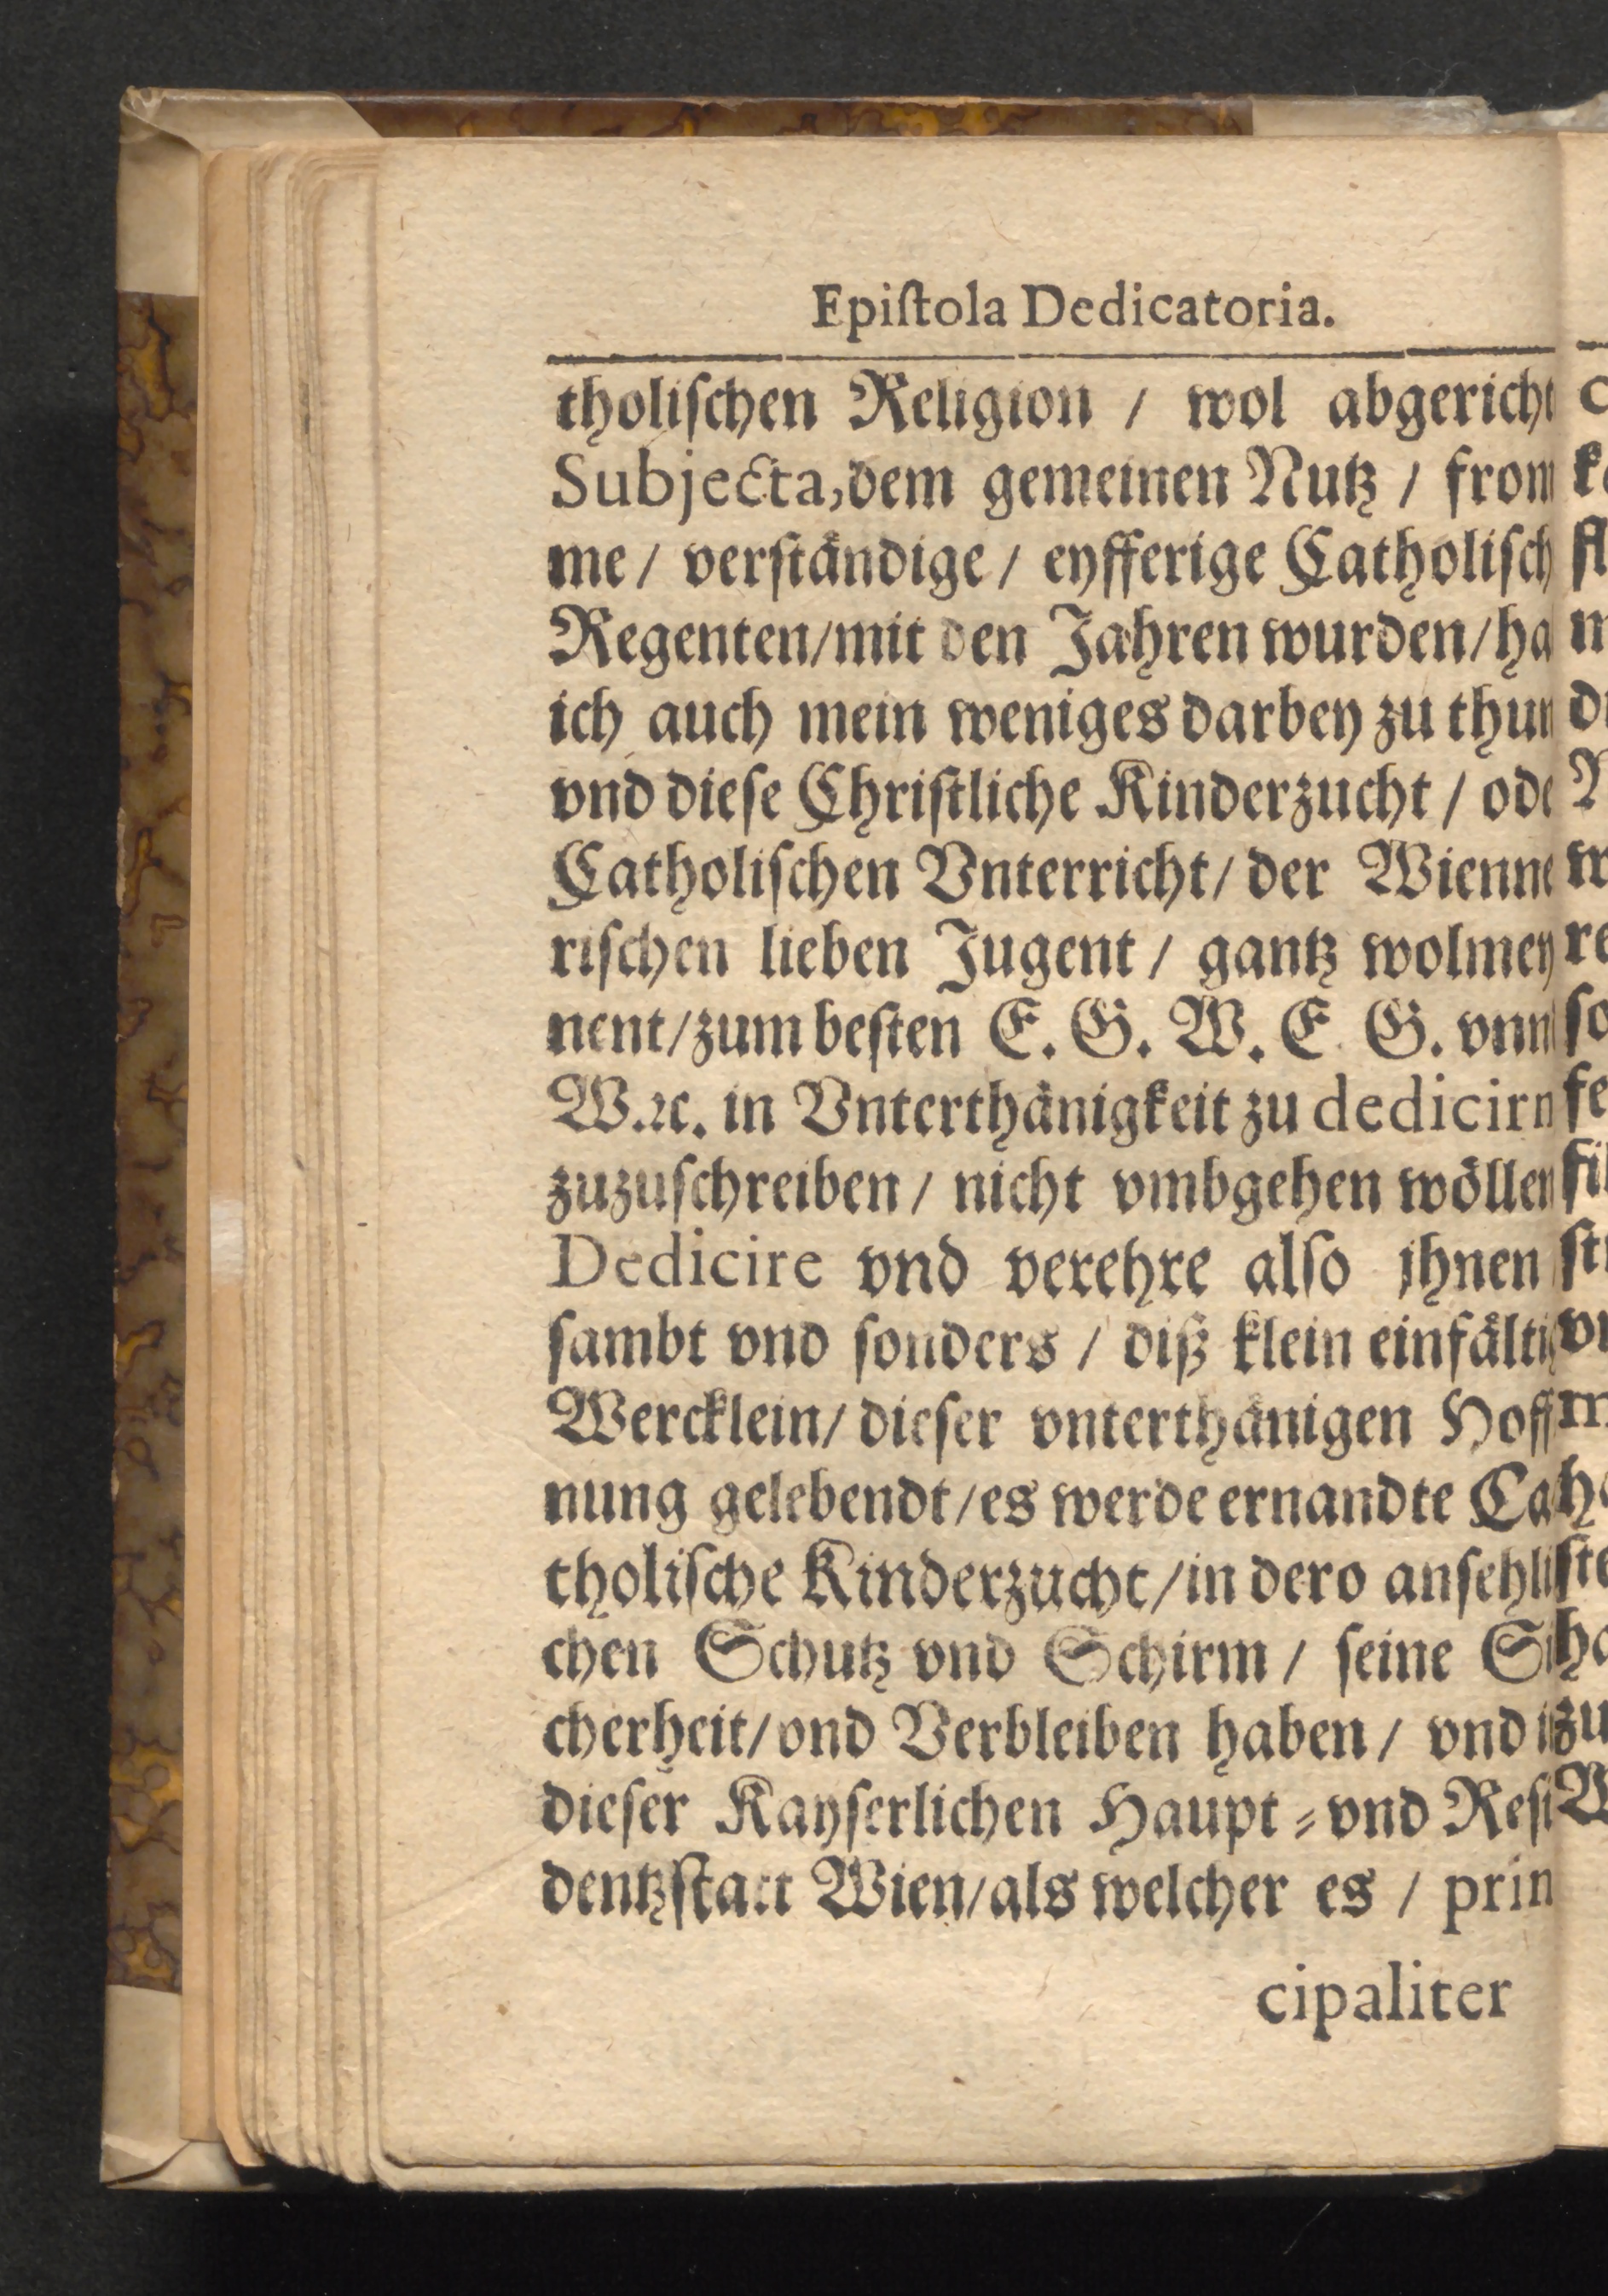 Epiſtola Dedicatoria.
tholiſchen Religion / wol abgericht
Subjecta, dem gemeinen Nutz / from
me / verſtändige / eyfferige Catholiſch
Regenten/mit den Jahren wurden/ha
ich auch mein weniges darbey zu thun
vnd diese Chriſtliche Kinderzucht / ode
Catholiſchen Vnterricht/ der Wienne
riſchen lieben Jugent / gantz wolmey
nent/zum beſten E. G. W. E. G. vnn
W.ꝛc. in Vnterthänigkeit zu dedicirn
zuzuſchreiben / nicht vmbgehen wöllen
Dedicire vnd verehre alſo jhnen
ſambt vnd ſonders / diß klein einfälti
Wercklein/ dieſer vnterthänigen Hoff
nung gelebendt/es werde ernandte Ca
tholiſche Kinderzucht/in dero anſehli
chen Schutz vnd Schirm / ſeine Si
cherheit/vnd Verbleiben haben / vnd i
dieſer Kayſerlichen Haupt⸗vnd Reſi
dentzſtatt Wien/als welcher es / prin
cipaliter